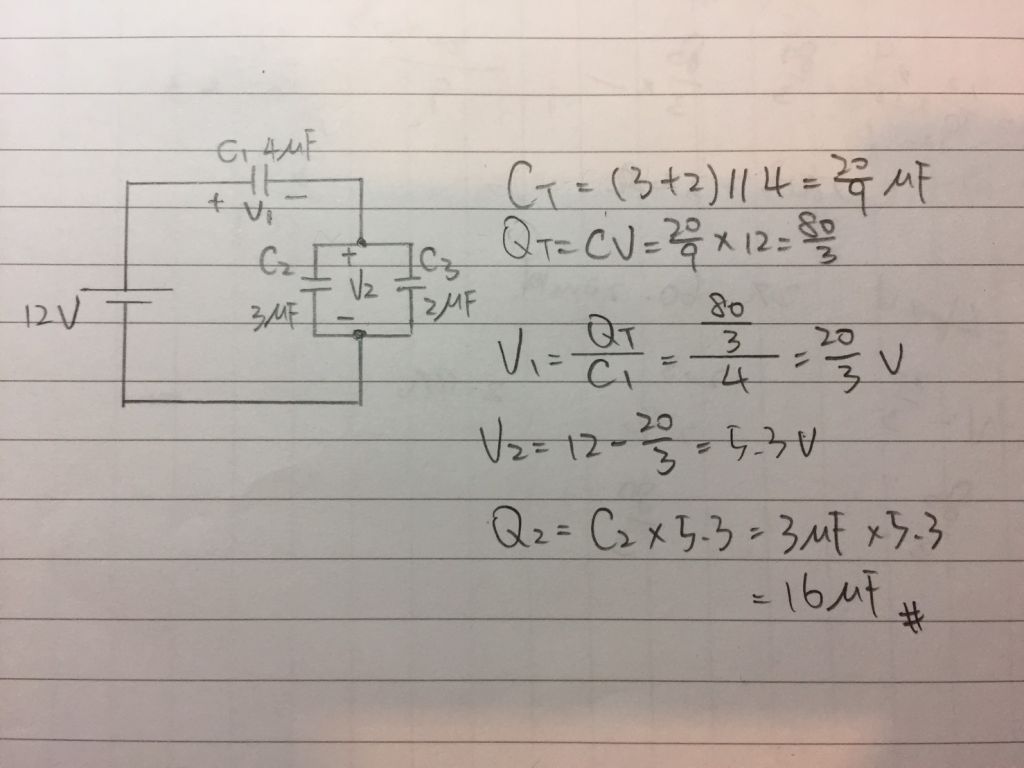 C1 4μF
+ V1 −
C2 + C3
V2
12V
3μF − 2μF
CT = (3+2)||4 = 20/9 μF
QT = CV = 20/9 × 12 = 80/3
V1 = QT/C1 = (80/3)/4 = 20/3 V
V2 = 12 − 20/3 = 5.3V
Q2 = C2 × 5.3 = 3μF × 5.3
= 16μF #